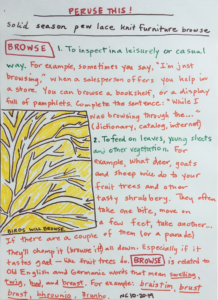 PERUSE THIS!
solid season pew lace knit furniture browse
BROWSE 1. To inspect in a leisurely or casual
way. For example, sometimes you say, "I'm just
browsing," when a salesperson offers you help in
a store. You can browse a bookshelf, or a display
full of pamphlets. Complete the sentence: "While I
was browsing through the...
(dictionary, catalog, internet)
2. To feed on leaves, young shoots
and other vegetation. For
example, what deer, goats
and sheep will do to your
fruit trees and other
tasty shrubbery. They often
take one bite, move on
a few feet, take another...
BIRDS WILL BROWSE
If there are a couple of them (or a parade)
they'll chomp it (browse it) all down. Especially if it
tastes good - like fruit trees do. BROWSE is related to
Old English and Germanic words that mean swelling,
twig, bud, and breast. For example: brustian, breost,
brust,